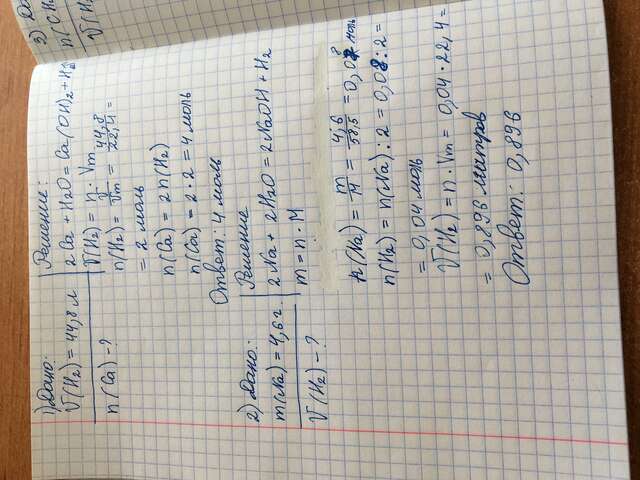 1) Дано:
V(H₂) = 44,8 л
n(Ca) - ?
Решение:
2Ca + H₂O = Ca(OH)₂ + H₂
V(H₂) = n · Vm
n(H₂) = V/Vm = 44,8/22,4 =
= 2 моль
n(Ca) = 2n(H₂)
n(Ca) = 2 · 2 = 4 моль
Ответ: 4 моль
2) Дано:
m(Na) = 4,6 г.
V(H₂) - ?
Решение
2Na + 2H₂O = 2NaOH + H₂
m = n · M
n(Na) = m/M = 4,6/58,5 = 0,08 моль
n(H₂) = n(Na) : 2 = 0,08 : 2 =
= 0,04 моль
V(H₂) = n · Vm = 0,04 · 22,4 =
= 0,896 литров
Ответ: 0,896
3)